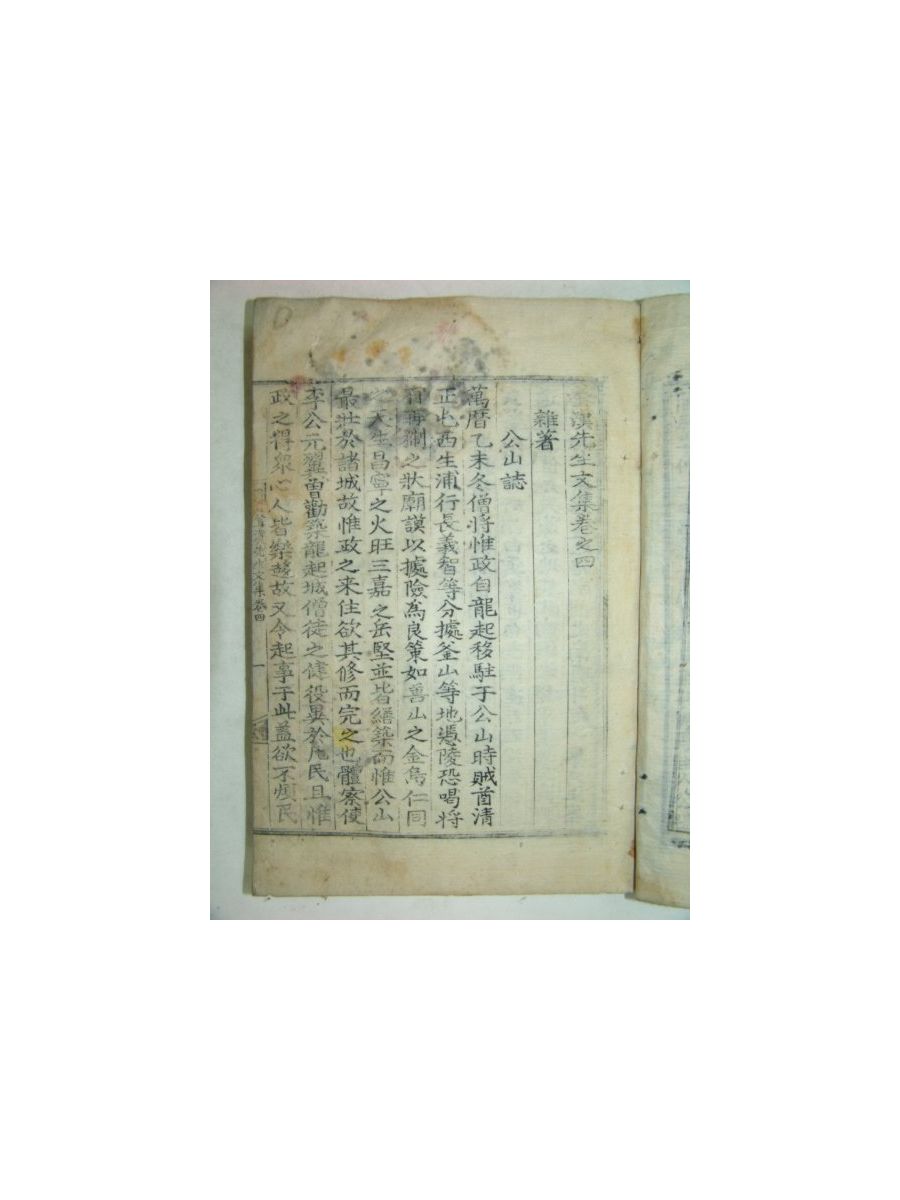 漢先生文集卷之四
雜著
公山誌
萬曆乙未冬僧將惟政自龍起移駐于公山時賊酋淸
正屯西生浦行長義智等分據釜山等地憑陵恐喝將
有再猘之狀廟謨以據險爲良策如善山之金烏仁同
之天生昌寧之火旺三嘉之岳堅並皆繕築而惟公山
最壯於諸城故惟政之来住欲其修而完之也體察使
李公元翼曽勸築龍起城僧徒之健役異於凡民且惟
政之得衆心人皆樂趍故又令起事于此盖欲不煩民
先生文集卷四
一